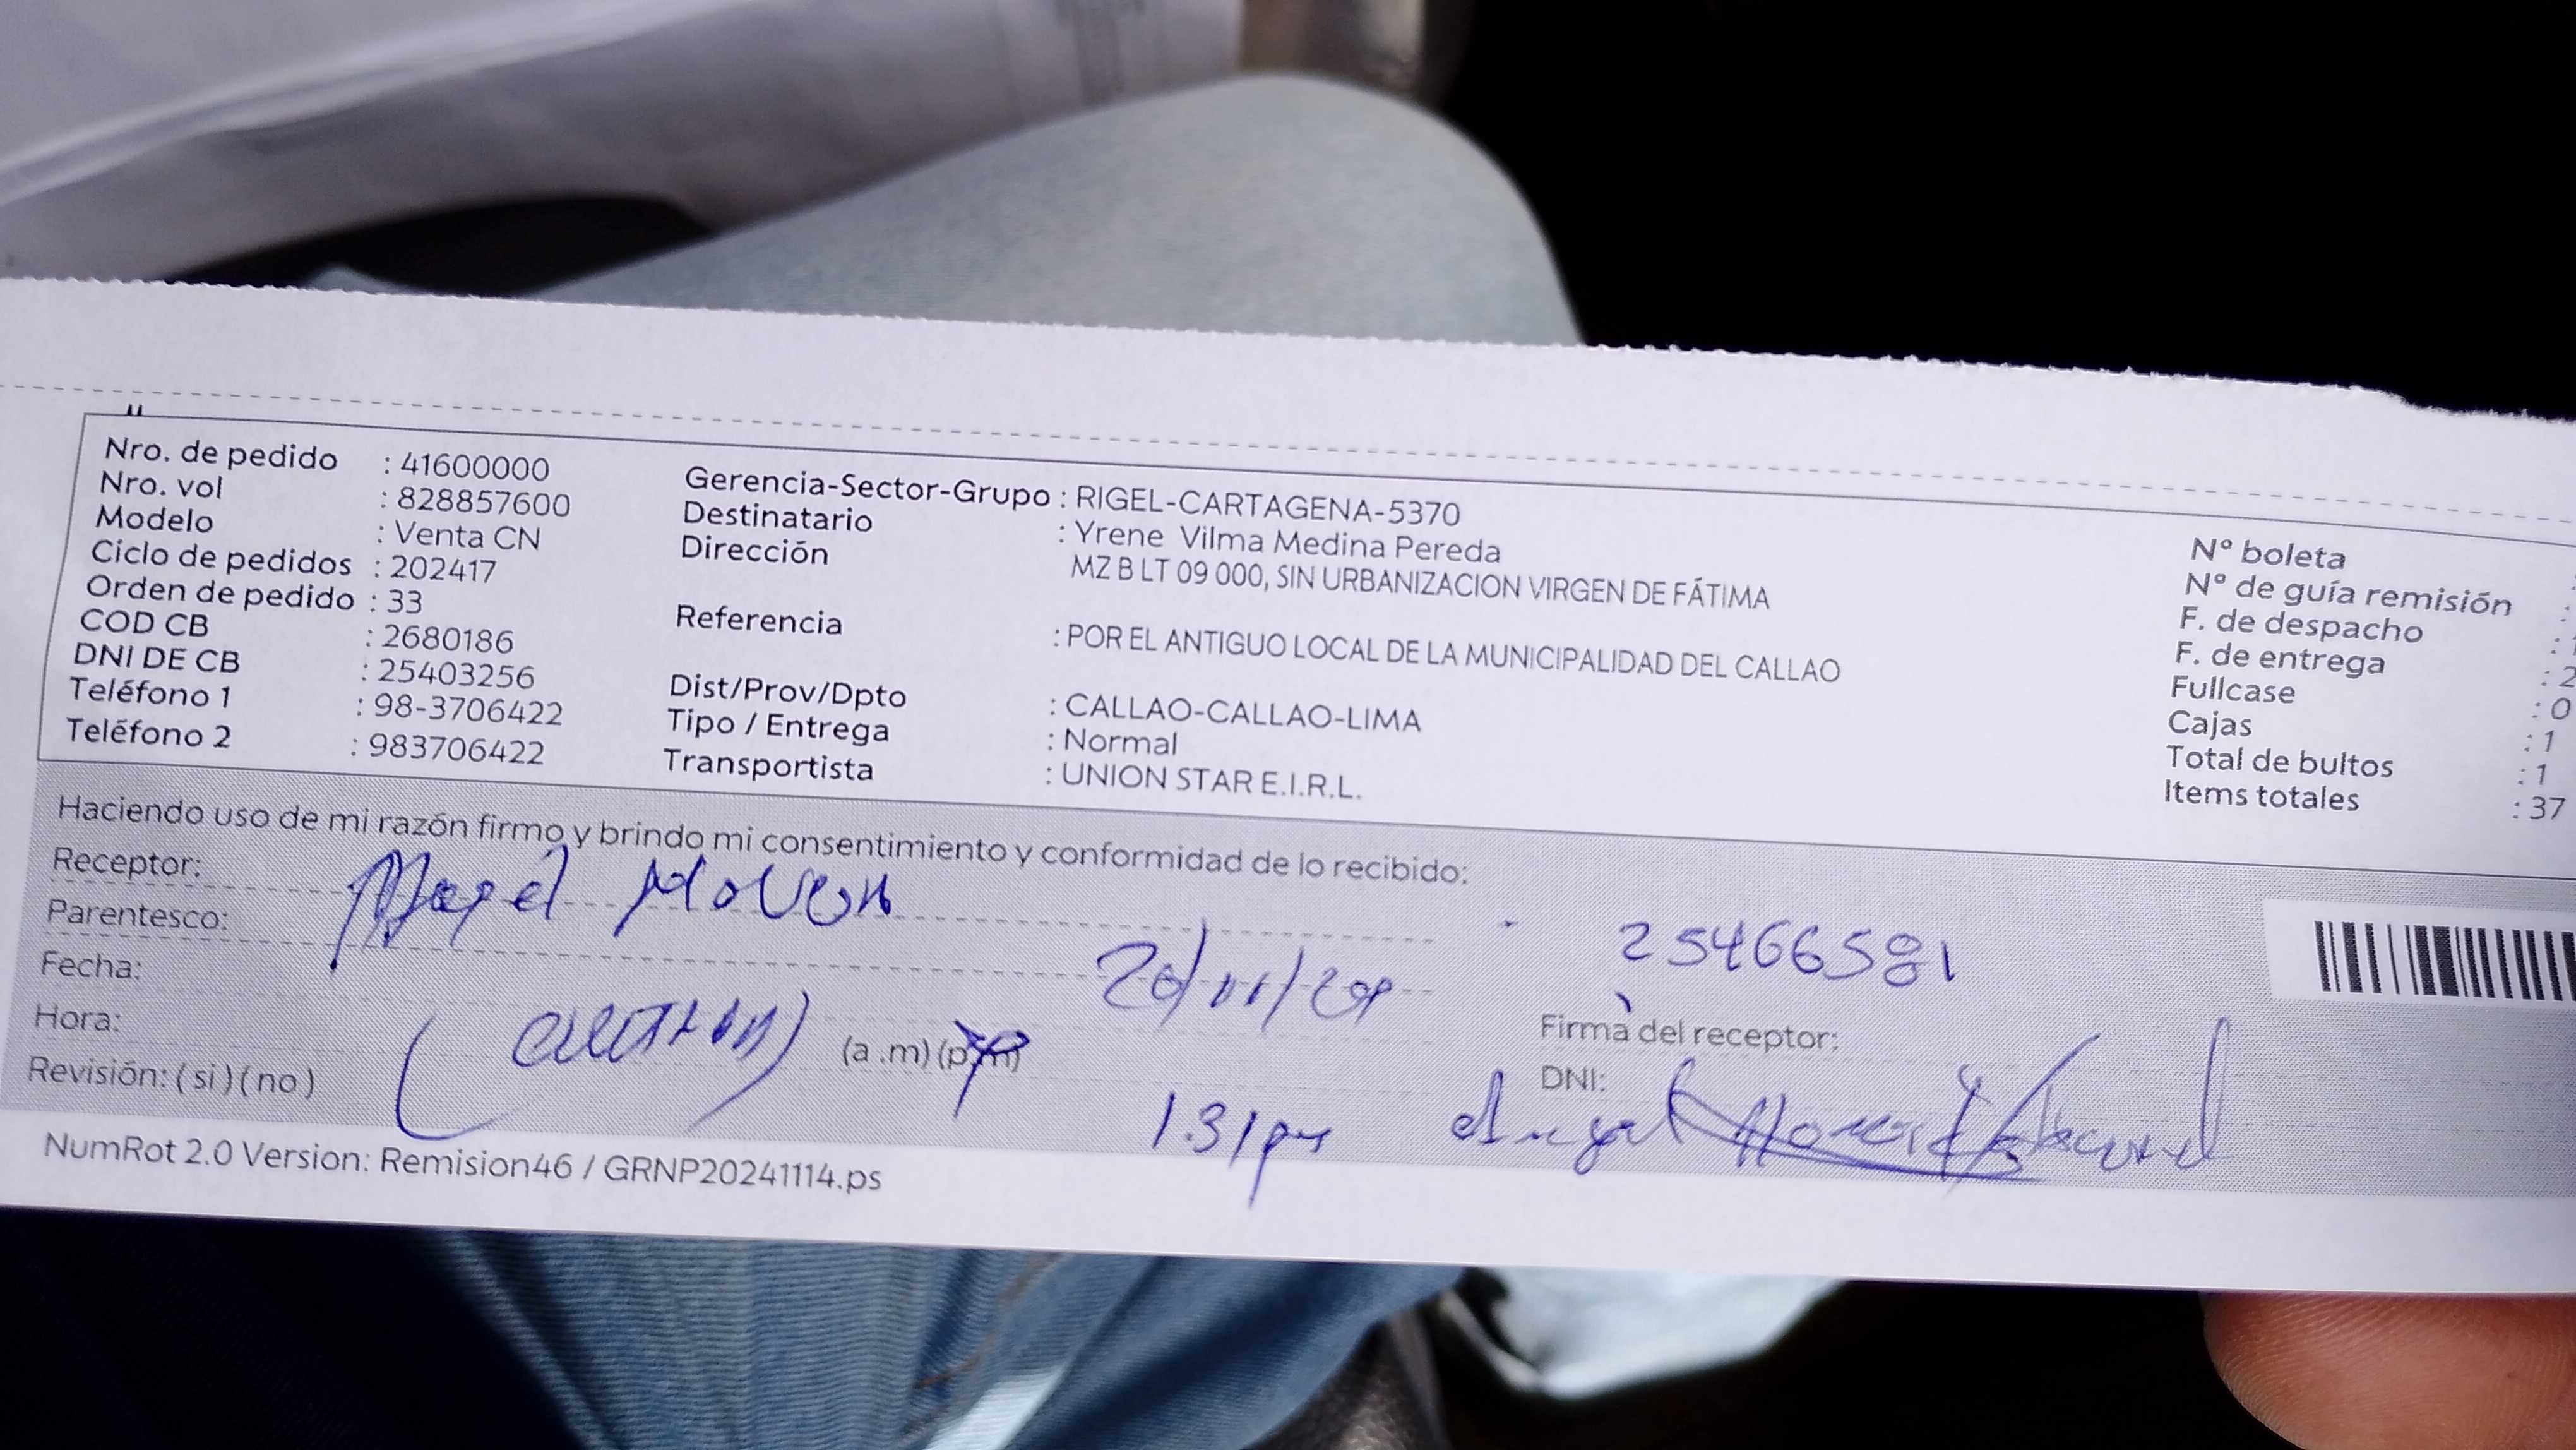 Nro. de pedido : 41600000
Nro. vol : 828857600
Modelo : Venta CN
Ciclo de pedidos : 202417
Orden de pedido : 33
COD CB : 2680186
DNI DE CB : 25403256
Teléfono 1 : 98-3706422
Teléfono 2 : 983706422
Gerencia-Sector-Grupo : RIGEL-CARTAGENA-5370
Destinatario : Yrene Vilma Medina Pereda
Dirección MZ B LT 09 000, SIN URBANIZACION VIRGEN DE FÁTIMA
Referencia : POR EL ANTIGUO LOCAL DE LA MUNICIPALIDAD DEL CALLAO
Dist/Prov/Dpto : CALLAO-CALLAO-LIMA
Tipo / Entrega : Normal
Transportista : UNION STAR E.I.R.L.
Nº boleta
Nº de guía remisión :
F. de despacho : 1
F. de entrega : 2
Fullcase : 0
Cajas : 1
Total de bultos : 1
Items totales : 37
Haciendo uso de mi razón firmo y brindo mi consentimiento y conformidad de lo recibido:
Receptor:
Parentesco: 25466581
Fecha:
Hora: (a .m) (p.m) Firma del receptor:
Revisión: ( si ) ( no ) 1.31 DNI:
NumRot 2.0 Version: Remision46 / GRNP20241114.ps